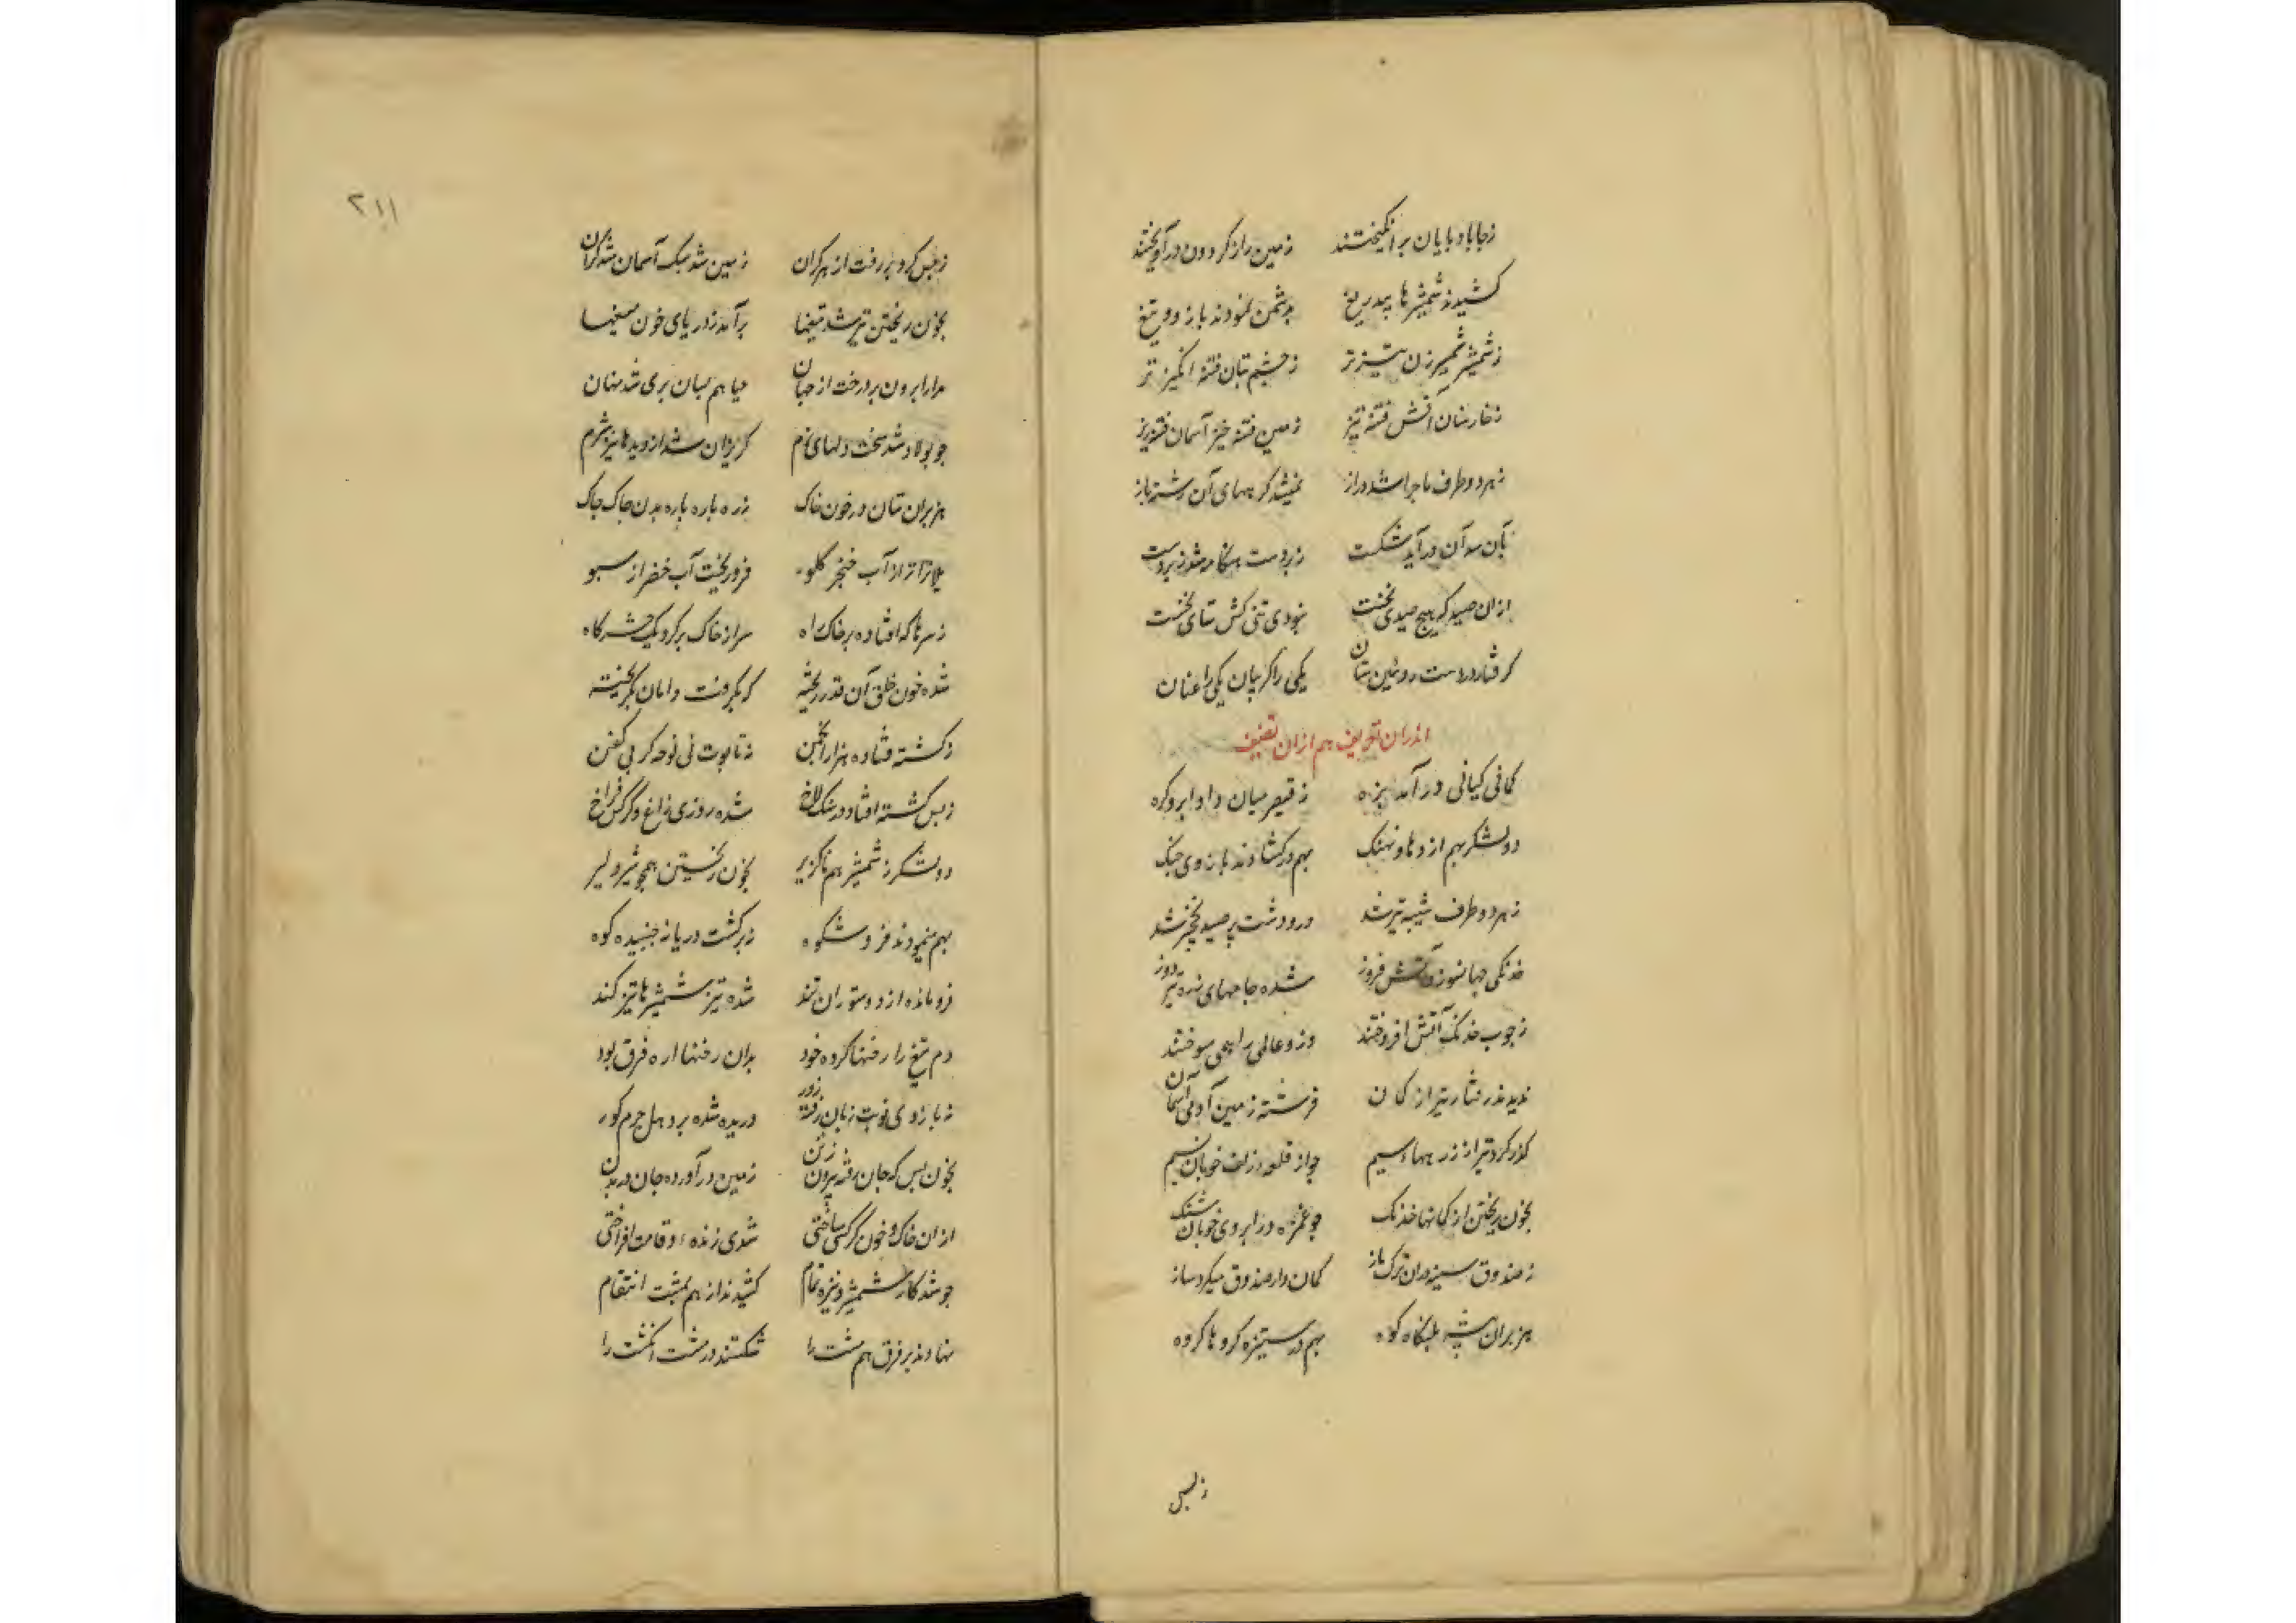 زجا بادپایان برانگیختند زمین را ز گردون درآویختند
کشیدند شمشیرها بیدریغ بدشمن نمودند بازو و تیغ
ز شمشیر شمشیرزن تیزتر ز چشم بتان فتنه انگیزتر
ز خار سنان آتش فتنه تیز زمین فتنه خیز آسمان فتنه ریز
ز هر دو طرف ماجرا شد دراز نمیشد گرههای آن رشته باز
بآن سو آن درآید شکست زبردست هنگامه شد زیردست
ازان صید که هیچ صیدی نخست نبودی تنی کش نتای نخست
گرفتار دست روئین تنان یکی را گریبان یکی را عنان
هم ازان تصنیف
کمانی کیانی درآمد بزه ز قیصر میان داد ابرو گره
دو لشکر بهم اژدها و نهنگ بهم درکشادند بازوی جنگ
ز هر دو طرف شیبه تیر شد در و دشت پر صید نخچیر شد
خدنگی جهانسوز و آتش فروز شده جامهای زره تیردوز
ز چوب خدنگ آتش افروختند وزو عالمی را همی سوختند
ندیدند رفتار تیر از کمان فرشته زمین آدمی آسمان
گذر کرد تیر از زرههای سیم چو از قلعه زلف خوبان نسیم
بخون ریختن از کمانها خدنگ چو غمزه در ابروی خوبان شنگ
ز صندوق سینه دران ترک باز کمان دار صندوق میکرد ساز
هزبران بیشه پلنگان کوه بهم در ستیزه گروها گروه
زبس
۲۱۱
زبس گرد بر رفت از هر کران زمین شد سبک آسمان شد گران
بخون ریختن تیز شد تیغها برآمد ز دریای خون میغها
مدارا برون برد رخت از جهان حیا هم بسان پری شد نهان
چو پولاد شد سخت دلهای نرم گریزان شد از دیدها نیز شرم
هزبران تنان در خون خاک زره پاره پاره بدن چاک چاک
یلانرا تر از آب خنجر گلو فرو ریخت آب خضر از سبو
ز سرها که افتاده بر خاک راه سر از خاک بر کرد یک حشرگاه
شده خون خلق آن قدر ریخته که بگرفت دامان بگریخته
ز کشته فتاده هزار انجمن نه تابوت نی نوحه گر نی کفن
زبس کشته افتاد در سنگلاخ شده روزی زاغ و کرکس فراخ
دو لشکر ز شمشیر هم ناگزیر بخون ریختن همچو شیر دلیر
بهم مینمودند فر و شکوه نه برگشت دریا نه جنبیده کوه
فرو مانده از دو ستوران تند شده تیز شمشیرها نیز کند
دم تیغ را رخنها کرده خود بدان رخنها اره فرق بود
ز بازوی نوبت زنان رفته زور دریده شده بر دهل چرم گور
بخون بس که جان رفته بیرون ز تن زمین درآورده جان در بدن
از ان خاک و خون گر کسی ساختی شدی زنده و قامت افراختی
چو شد کار شمشیر و نیزه تمام کشیدند از هم بمشت انتقام
نهادند بر فرق هم مشت را شکستند در مشت انگشت را